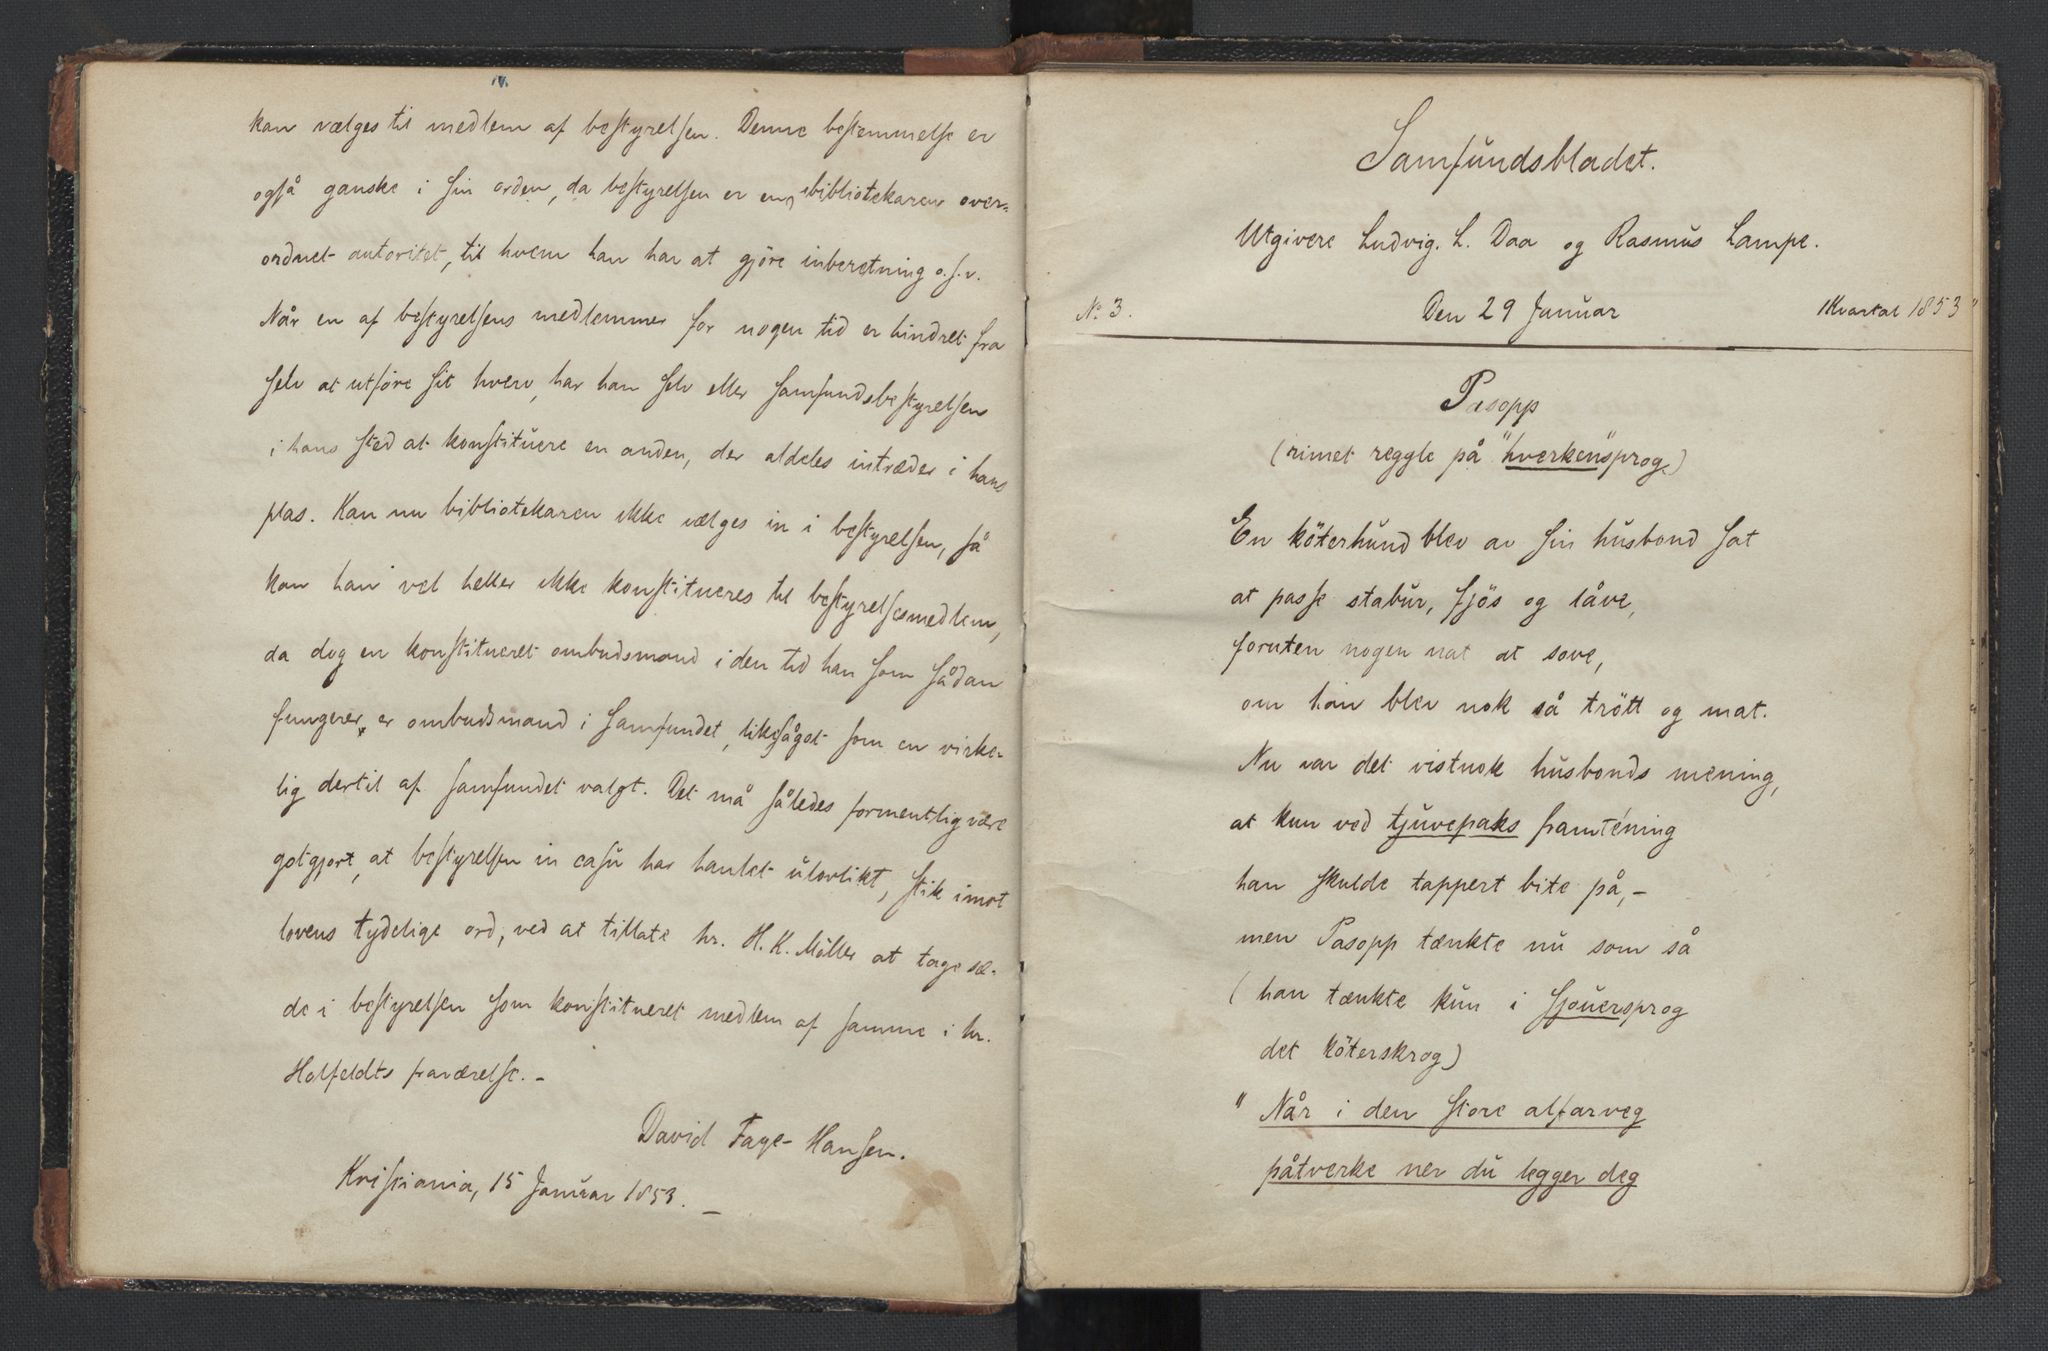 kan vælges til medlem af bestyrelsen. Denne bestemmelse er
også ganske i sin orden, da bestyrelsen er en, bibliotekaren over-
ordnet autoritet, til hvem han har at gjöre inberetning o.s.v.
Når en af bestyrelsens medlemmer for nogen tid er hindret fra
selv at utföre sit hverv, har han selv eller samfundsbestyrelsen
i hans sted at konstituere en anden, der aldeles intræder i hans
plas. Kan nu bibliotekaren ikke vælges in i bestyrelsen, så
kan han vel heller ikke konstitueres til bestyrelsesmedlem,
da dog en konstitueret ombudsmand i den tid han som sådan
fungerer, er ombudsmand i samfundet, likesåget som en virke-
lig dertil af samfundet valgt. Det må således formentlig være
gotgjort, at bestyrelsen in casu har hanlet ulovlikt, stik imot
lovens tydelige ord, ved at tillate hr. H. K. Möller at tage sæ-
de i bestyrelsen som konstitueret medlem af samme i hr.
Holfeldts fraværelse. –
David Faye-Hansen.
Kristiania, 15 Januar 1853. –
Samfundsbladet.
Utgivere Ludvig. L. Daa og Rasmus Lampe.
No 3. Den 29 Januar 1 Kvartal 1853
Pasopp
(rimet reggle på "hverken"sprog)
En köterhund blev av sin husbond sat
at passe stabur, fjös og låve,
foruten nogen nat at sove,
om han blev nok så trött og mat.
Nu var det vistnok husbonds mening,
at kun ved tjuvepaks framténing
han skulde tappert bite på, –
men Pasopp tænkte nu som så
(han tænkte kun i sjouersprog
det köterskrog)
" Når i den store alfarveg
påtverke ner du legger deg